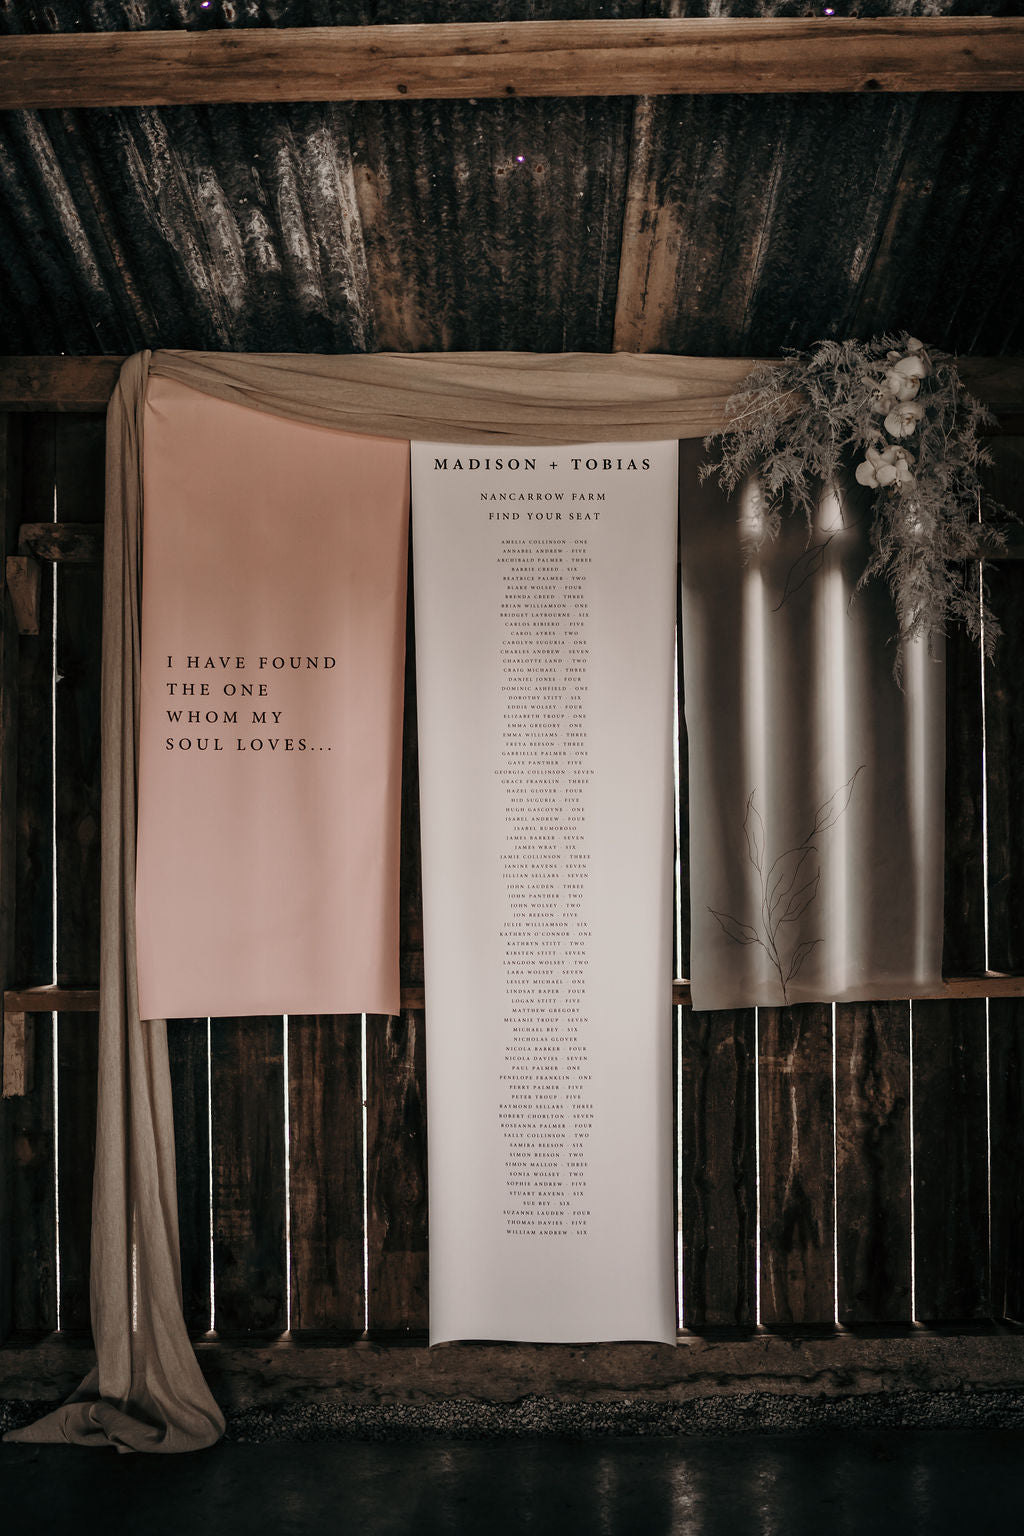 I HAVE FOUND
THE ONE
WHOM MY
SOUL LOVES...
MADISON + TOBIAS
NANCARROW FARM
FIND YOUR SEAT
AMELIA COLLINSON - ONE
ANNABEL ANDREW - FIVE
ARCHIBALD PALMER - THREE
BARRIE CREED - SIX
BEATRICE PALMER - TWO
BLAKE WOLSEY - FOUR
BRENDA CREED - THREE
BRIAN WILLIAMSON - ONE
BRIDGET LAYBOURNE - SIX
CARLOS RIBIERO - FIVE
CAROL AYRES - TWO
CAROLYN SUGURIA - ONE
CHARLES ANDREW - SEVEN
CHARLOTTE LAND - TWO
CRAIG MICHAEL - THREE
DANIEL JONES - FOUR
DOMINIC ASHFIELD - ONE
DOROTHY STITT - SIX
EDDIE WOLSEY - FOUR
ELIZABETH TROUP - ONE
EMMA GREGORY - ONE
EMMA WILLIAMS - THREE
FREYA BEESON - THREE
GABRIELLE PALMER - ONE
GAYE PANTHER - FIVE
GEORGIA COLLINSON - SEVEN
GRACE FRANKLIN - THREE
HAZEL GLOVER - FOUR
HID SUGURIA - FIVE
HUGH GASCOYNE - ONE
ISABEL ANDREW - FOUR
ISABEL RUMOROSO
JAMES BARKER - SEVEN
JAMES WRAY - SIX
JAMIE COLLINSON - THREE
JANINE RAVENS - SEVEN
JILLIAN SELLARS - SEVEN
JOHN LAUDEN - THREE
JOHN PANTHER - TWO
JOHN WOLSEY - TWO
JON BEESON - FIVE
JULIE WILLIAMSON - SIX
KATHRYN O'CONNOR - ONE
KATHRYN STITT - TWO
KIRSTEN STITT - SEVEN
LANGDON WOLSEY - TWO
LARA WOLSEY - SEVEN
LESLEY MICHAEL - ONE
LINDSAY RAPER - FOUR
LOGAN STITT - FIVE
MATTHEW GREGORY
MELANIE TROUP - SEVEN
MICHAEL BEY - SIX
NICHOLAS GLOVER
NICOLA BARKER - FOUR
NICOLA DAVIES - SEVEN
PAUL PALMER - ONE
PENELOPE FRANKLIN - ONE
PERRY PALMER - FIVE
PETER TROUP - FIVE
RAYMOND SELLARS - THREE
ROBERT CHORLTON - SEVEN
ROSEANNA PALMER - FOUR
SALLY COLLINSON - TWO
SAMIRA BEESON - SIX
SIMON BEESON - TWO
SIMON MALLON - THREE
SONIA WOLSEY - TWO
SOPHIE ANDREW - FIVE
STUART RAVENS - SIX
SUE BEY - SIX
SUZANNE LAUDEN - FOUR
THOMAS DAVIES - FIVE
WILLIAM ANDREW - SIX